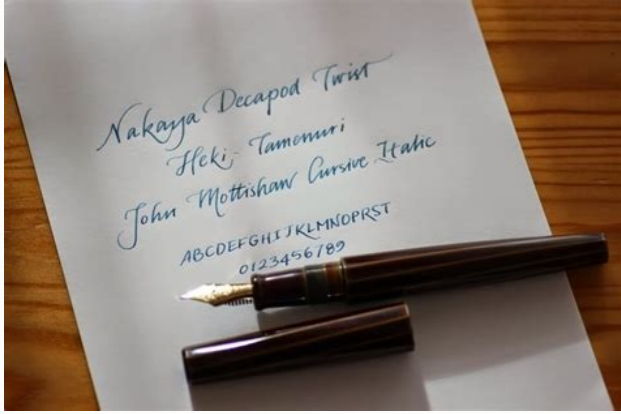 Nakaya Decapod Twist
Heki-Tamenuri
John Mottishaw Cursive Italic
ABCDEFGHIJKLMNOPRST
0123456789